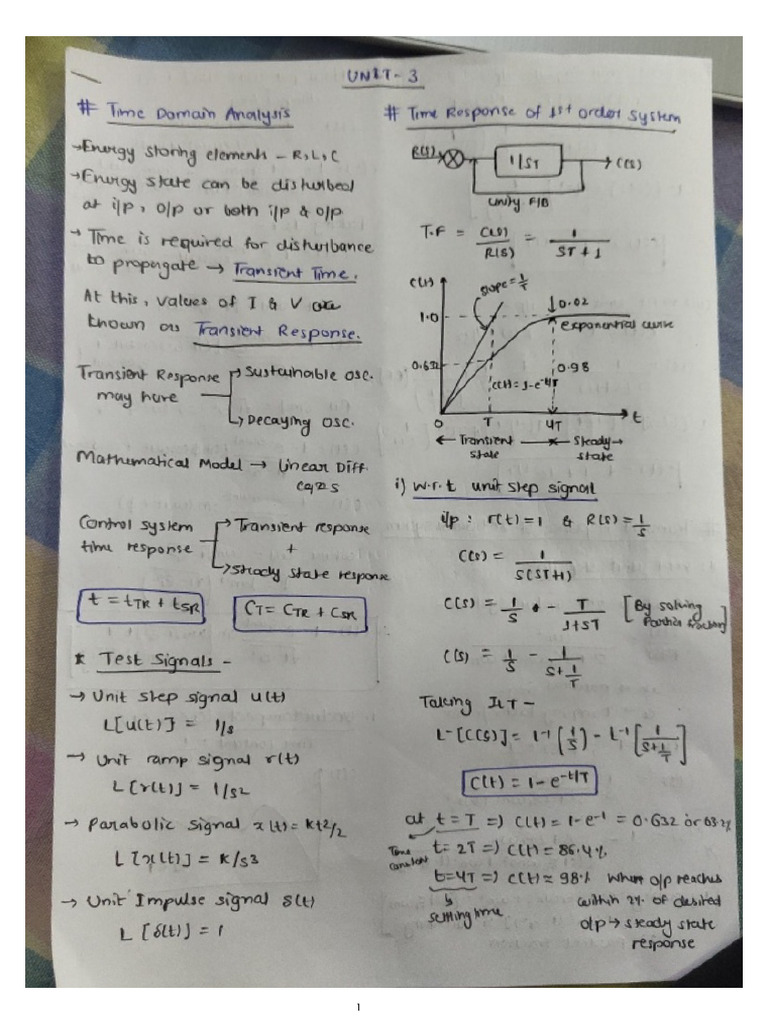 UNIT-3
# Time Domain Analysis
→ Energy storing elements - R, L, C
→ Energy state can be disturbed
at i/p, o/p or both i/p & o/p
→ Time is required for disturbance
to propogate → Transient Time.
At this, values of I & V are
known as Transient Response.
Transient Response may have
→ Sustainable osc.
→ Decaying osc.
Mathematical Model → Linear Diff.
eqns
Control system time response
→ Transient response
+
→ Steady state response
t = tTR + tSR
CT = CTR + CSR
* Test Signals -
→ Unit step signal u(t)
L[u(t)] = 1/s
→ Unit ramp signal r(t)
L[r(t)] = 1/s2
→ Parabolic signal x(t) = Kt2/2
L[x(t)] = K/s3
→ Unit Impulse signal δ(t)
L[δ(t)] = 1
# Time Response of 1st order system
R(s)
1/ST
C(s)
Unity F/B
T.F = C(s)/R(s) = 1/ST+1
C(t)
slope = 1/T
0.02
1.0
exponential curve
0.632
0.98
c(t) = 1-e-t/T
0
T
4T
t
← Transient state
Steady → state
i) w.r.t unit step signal
i/p : r(t) = 1 & R(s) = 1/s
C(s) = 1/S(ST+1)
C(s) = 1/s - T/1+ST [By solving Partial fraction]
C(s) = 1/s - 1/S+1/T
Taking ILT -
L-[C(s)] = L-1[1/s] - L-1[1/S+1/T]
C(t) = 1 - e-t/T
at t = T => C(t) = 1-e-1 = 0.632 or 63.2%
Time constant
t = 2T => C(t) = 86.4%
t = 4T => C(t) = 98% where o/p reaches
settling time
within 2% of desired
o/p → steady state
response
1